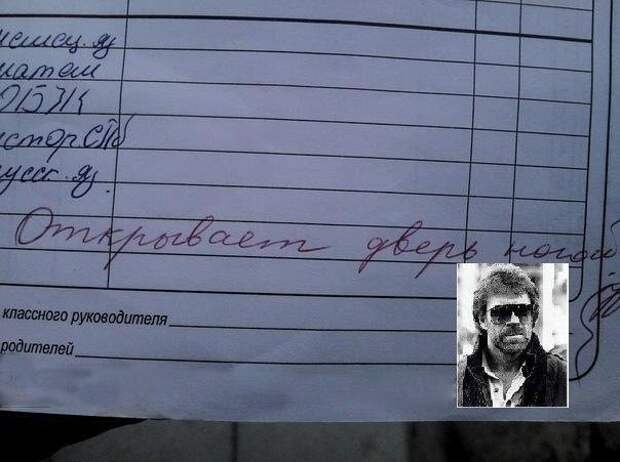 немец. яз
матем
ОБЖ
истор. СПб
русск. яз.
Открывает дверь ногой
классного руководителя
родителей